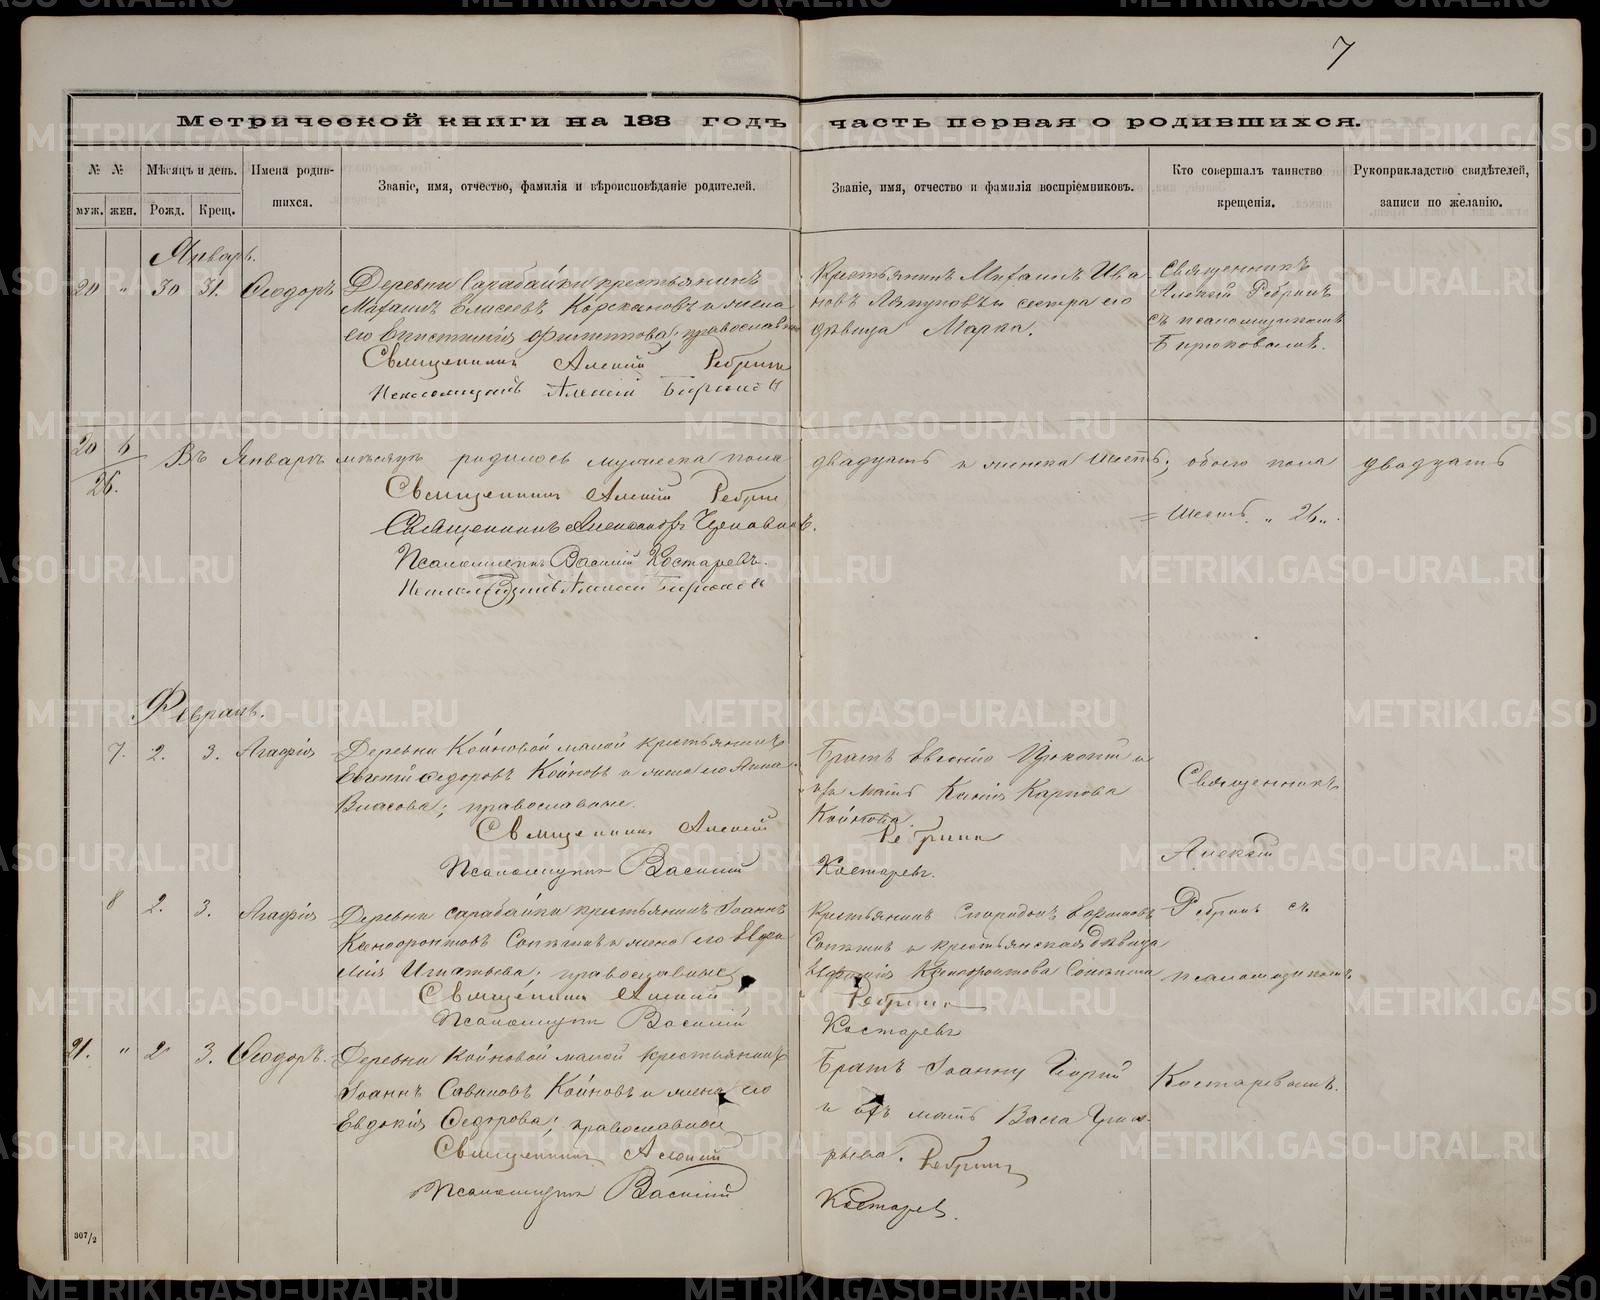 7
Метрической книги на 188 годъ часть первая о родившихся.
№ № Мѣсяцъ и день. Имена родив-
шихся.
муж. жен. Рожд. Крещ.
Званіе, имя, отчество, фамилія и вѣроисповѣданіе родителей.
Званіе, имя, отчество и фамилія воспріемниковъ.
Кто совершалъ таинство
крещенія.
Рукоприкладство свидѣтелей,
записи по желанію.
Январь.
20 " 30 31. Ѳеодоръ
Деревни Сарабайки крестьянинъ
Михаилъ Елисеевъ и жена
его Филиппова; православные
Священникъ Алексій Ребринъ
Псаломщикъ Алексій Бирюковъ
Крестьянинъ Михаилъ Ива
новъ и сестра его
дѣвица Марѳа.
Священникъ
Алексій Ребринъ
съ псаломщикомъ
Бирюковымъ.
20 6
26.
Въ Январѣ мѣсяцѣ родилось мужеска пола двадцать и женска шесть; обоего пола двадцать
= шесть " 26 ".
Священникъ Алексій Ребринъ
Священникъ Александръ
Псаломщикъ Василій Костаревъ.
Псаломщикъ Алексій Бирюковъ
Февраль.
7. 2. 3. Агафія
Деревни Койновой малой крестьянинъ
Евгеній Ѳедоровъ Койновъ и жена его Анна
Власова; православные.
Священникъ Алексій Ребринъ
Псаломщикъ Василій Костаревъ.
Братъ Евгенію и
ихъ мать Ксенія Карпова
Койнова.
Священникъ
Алексій
Ребринъ съ
псаломщикомъ
Костаревымъ.
8 2. 3. Агафія
Деревни Сарабайки крестьянинъ Іоаннъ
Ксенофонтовъ и жена его Евфи
мія Игнатьева; православные
Священникъ Алексій Ребринъ
Псаломщикъ Василій Костаревъ
Крестьянинъ Спиридонъ
и крестьянская дѣвица
Ксенофонтова
21. " 2 3. Ѳеодоръ.
Деревни Койновой малой крестьянинъ
Іоаннъ Савиновъ Койновъ и жена его
Евдокія Ѳедорова; православные
Священникъ Алексій Ребринъ
Псаломщикъ Василій Костаревъ.
Братъ Іоанну
и ихъ мать Васса
307/2
METRIKI.GASO-URAL.RU